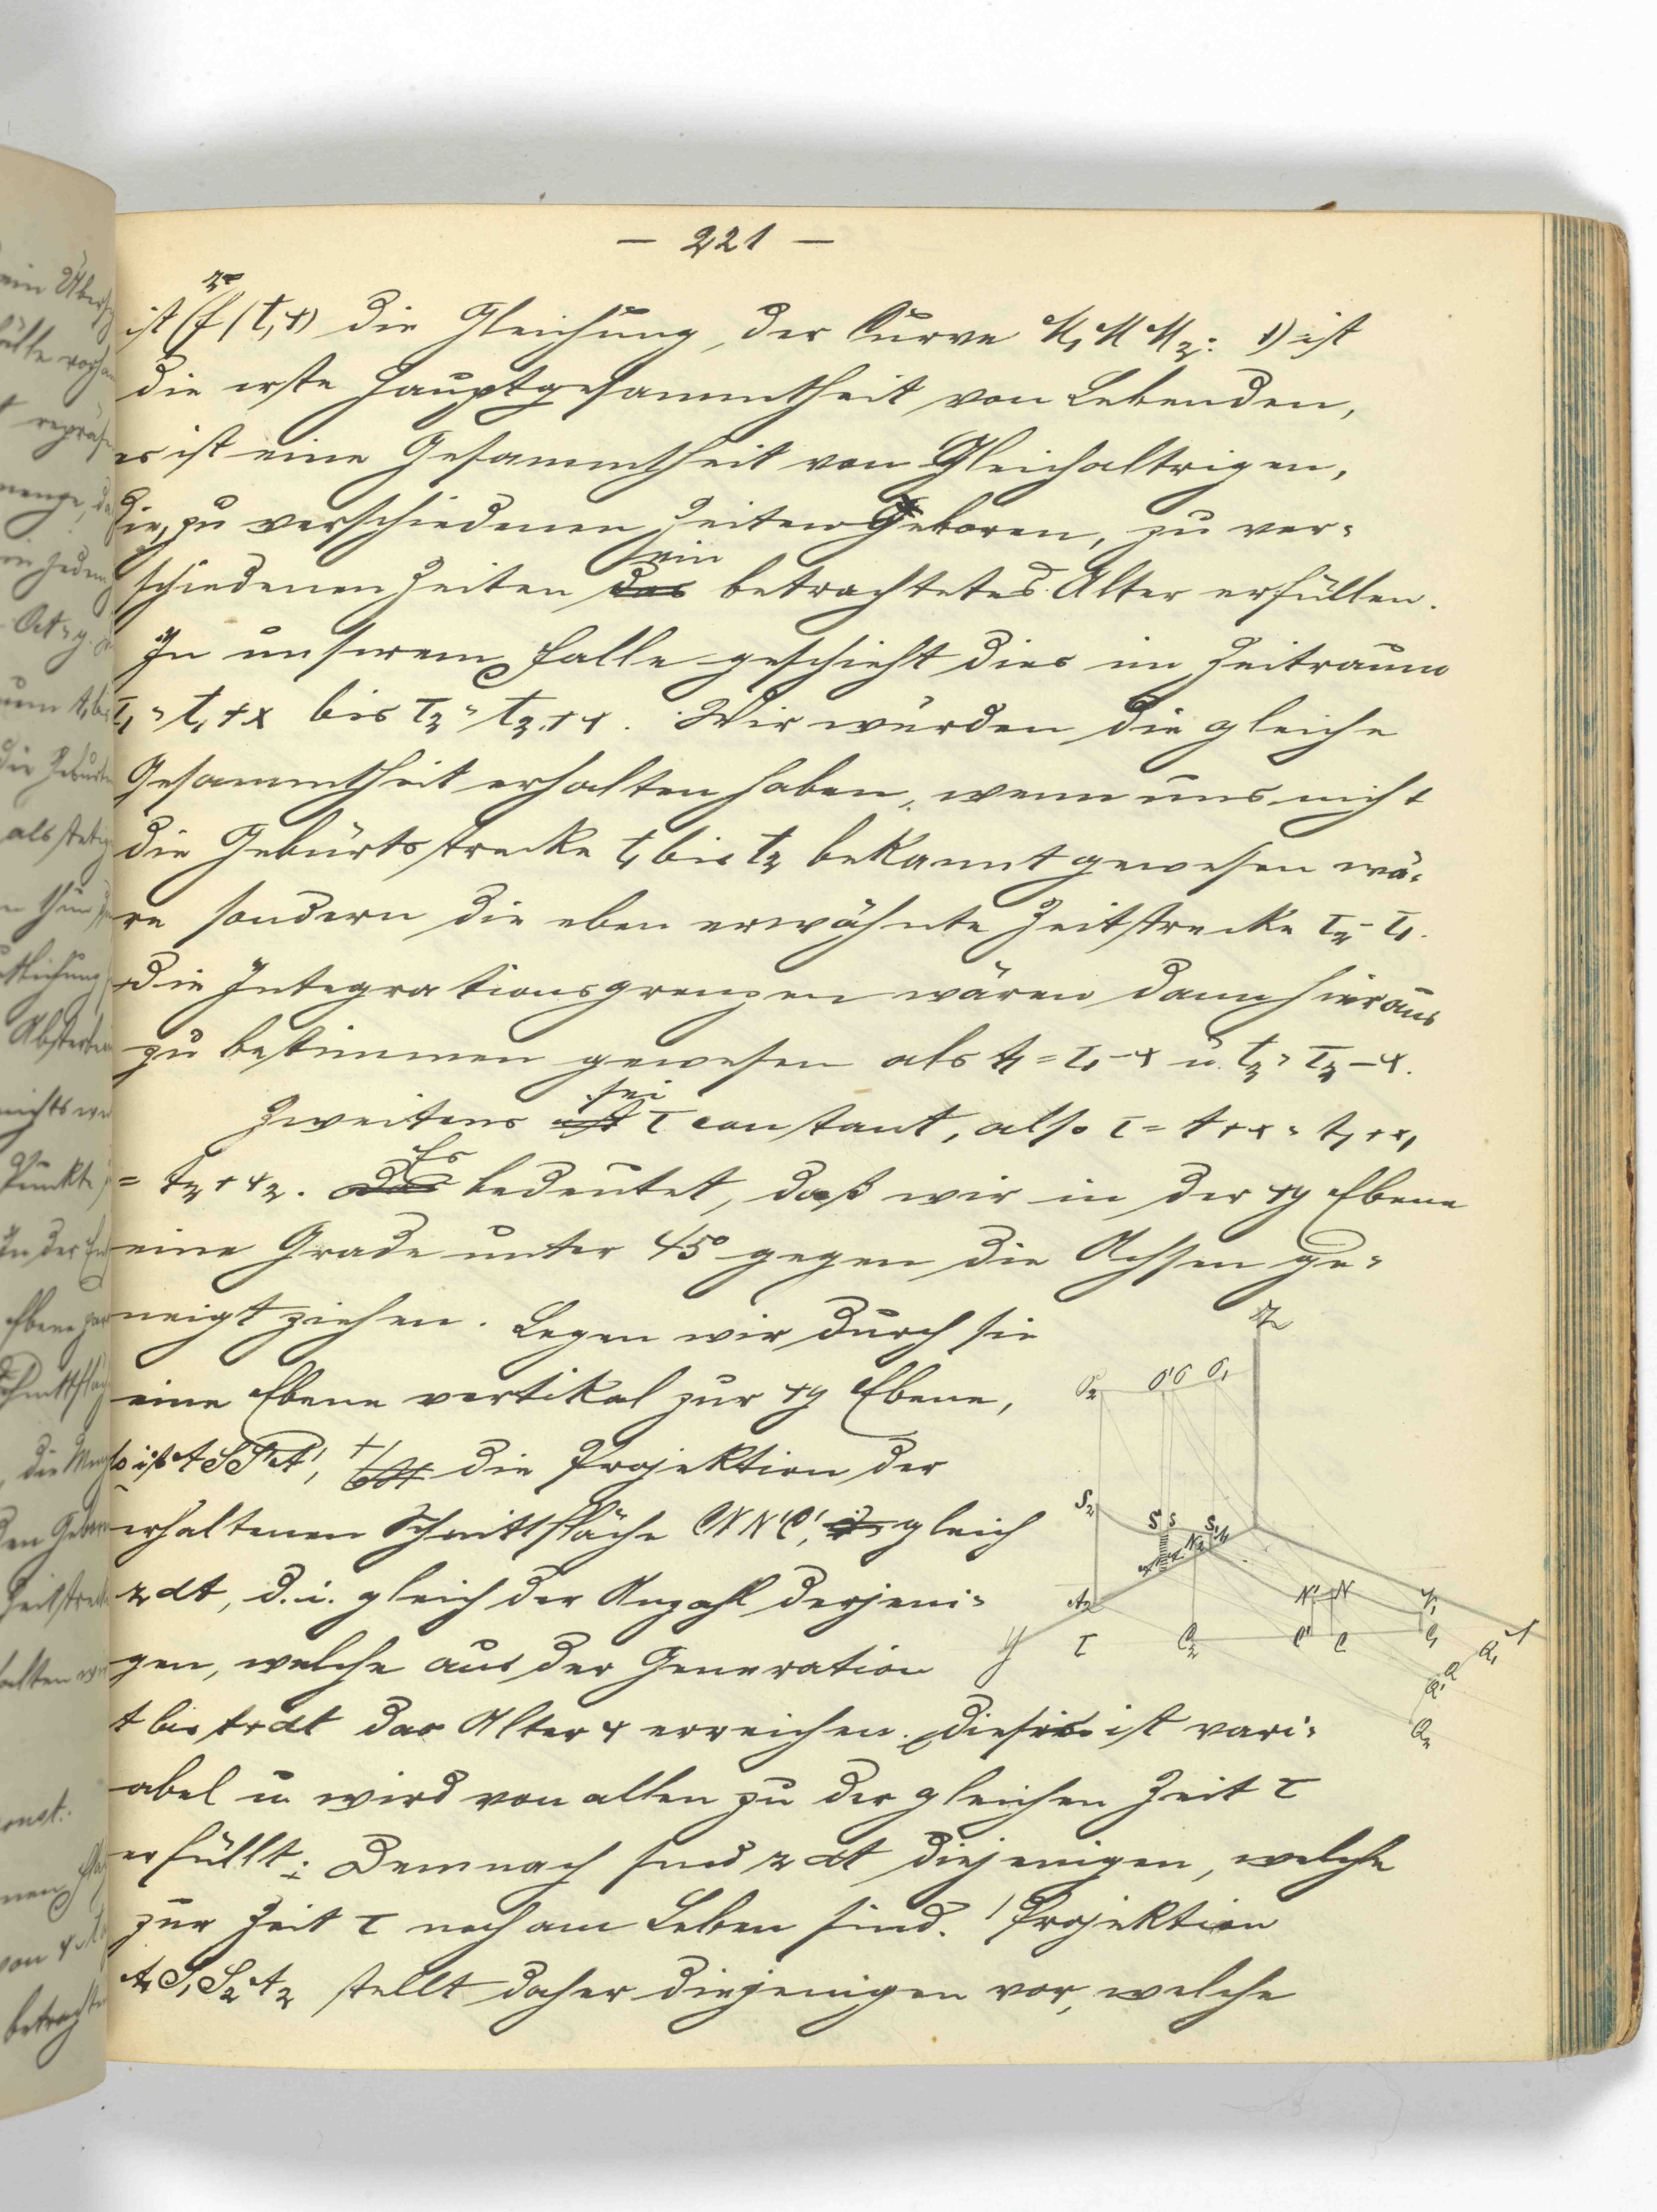 — 221 —
ist z=f(t,x) die Gleichung der Curve M₁MM₂: 1) ist
die erste Hauptgesammtheit von Lebenden,
es ist eine Gesammtheit von Gleichaltrigen,
die, zu verschiedenen Zeiten Geboren, zu ver=
schiedenen Zeiten ein betrachtetes Alter erfüllen.
In unserem Falle geschieht dies im Zeitraum
τ₁ = t₁+x bis τ₂ = t₂+x. Wir würden die gleiche
Gesammtheit erhalten haben, wenn uns nicht
die Geburtsstrecke t₁ bis t₂ bekannt gewesen wä=
re sondern die eben erwähnte Zeitstrecke τ₂-τ₁.
Die Integrationsgrenzen wären dann hieraus
zu bestimmen gewesen als t₁ = τ₁-x u. t₂ = τ₂-x.
Zweitens sei τ constant, also τ = t+x = t₁+x₁
= t₂+x₂. Es bedeutet, daß wir in der xy Ebene
eine Grade unter 45° gegen die Achsen ge=
neigt ziehen. Legen wir durch sie
eine Ebene vertikal zur xy Ebene,
so ist ASS'A', die Projektion der
erhaltenen Schnittfläche CNN'C', gleich
z dt, d.i. gleich der Anzahl derjeni=
gen, welche aus der Generation
t bis t+dt das Alter x erreichen. Dieses ist vari=
abel u. wird von allen zu der gleichen Zeit τ
erfüllt; Demnach sind z dt diejenigen, welche
zur Zeit τ noch am Leben sind. Projektion
A₁S₁S₂A₂ stellt daher diejenigen vor, welche
Z
O₂ O' O O₁
S₂ S' S S₁
N₂
A₂ N' N N₁
Y τ C₂ C' C C₁ X
Q₁
Q
Q'
Q₂